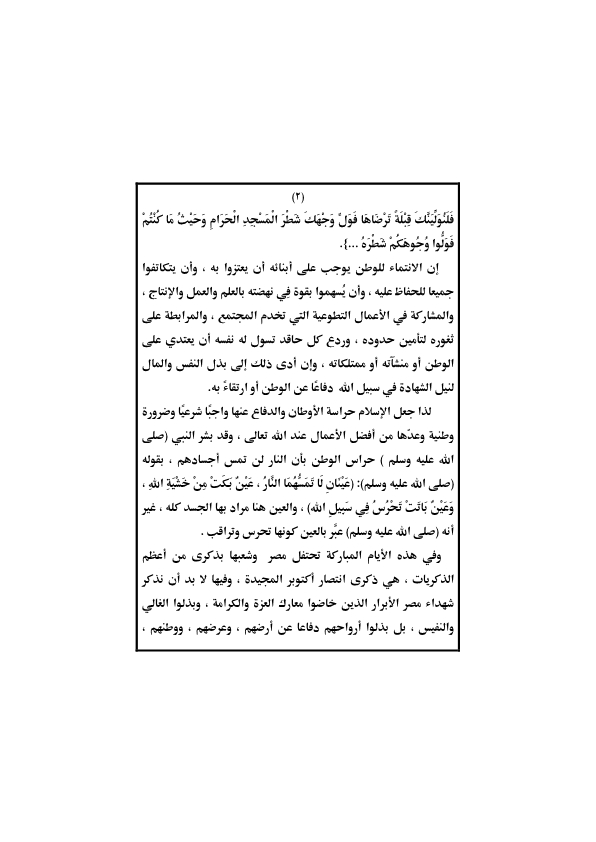 (٢)
فَلَنُوَلِّيَنَّكَ قِبْلَةً تَرْضَاهَا فَوَلِّ وَجْهَكَ شَطْرَ الْمَسْجِدِ الْحَرَامِ وَحَيْثُ مَا كُنْتُمْ
فَوَلُّوا وُجُوهَكُمْ شَطْرَهُ ...}.
إن الانتماء للوطن يوجب على أبنائه أن يعتزوا به ، وأن يتكاتفوا
جميعا للحفاظ عليه ، وأن يُسهموا بقوة في نهضته بالعلم والعمل والإنتاج ،
والمشاركة في الأعمال التطوعية التي تخدم المجتمع ، والمرابطة على
ثغوره لتأمين حدوده ، وردع كل حاقد تسول له نفسه أن يعتدي على
الوطن أو منشآته أو ممتلكاته ، وإن أدى ذلك إلى بذل النفس والمال
لنيل الشهادة في سبيل الله دفاعًا عن الوطن أو ارتقاءً به.
لذا جعل الإسلام حراسة الأوطان والدفاع عنها واجبًا شرعيًّا وضرورة
وطنية وعدّها من أفضل الأعمال عند الله تعالى ، وقد بشر النبي (صلى
الله عليه وسلم ) حراس الوطن بأن النار لن تمس أجسادهم ، بقوله
(صلى الله عليه وسلم): (عَيْنَانِ لَا تَمَسُّهُمَا النَّارُ ، عَيْنٌ بَكَتْ مِنْ خَشْيَةِ اللهِ ،
وَعَيْنٌ بَاتَتْ تَحْرُسُ فِي سَبِيلِ الله) ، والعين هنا مراد بها الجسد كله ، غير
أنه (صلى الله عليه وسلم) عبَّر بالعين كونها تحرس وتراقب .
وفي هذه الأيام المباركة تحتفل مصر وشعبها بذكرى من أعظم
الذكريات ، هي ذكرى انتصار أكتوبر المجيدة ، وفيها لا بد أن نذكر
شهداء مصر الأبرار الذين خاضوا معارك العزة والكرامة ، وبذلوا الغالي
والنفيس ، بل بذلوا أرواحهم دفاعا عن أرضهم ، وعرضهم ، ووطنهم ،